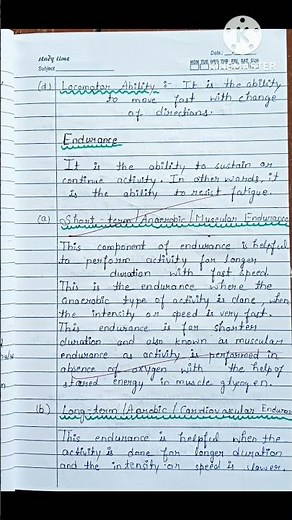 study time
Date:
MON TUE WED THU FRI SAT SUN
Subject
(d) Locomotor Ability :- It is the ability
to move fast with change
of directions.
Endurance
It is the ability to sustain or
continue activity. In other words, it
is the ability to resist fatigue.
(a) Short-term / Anaerobic / Muscular Endurance
This component of endurance is helpful
to perform activity for longer
duration with fast speed.
This is the endurance where the
anaerobic type of activity is done, when
the intensity or speed is very fast.
This endurance is for shorter
duration and also known as muscular
endurance as activity is performed in
absence of oxygen with the help of
stared energy in muscle glycogen.
(b) Long-term / Aerobic / Cardiovascular Endurance
This endurance is helpful when the
activity is done for longer duration
and the intensity or speed is slower.